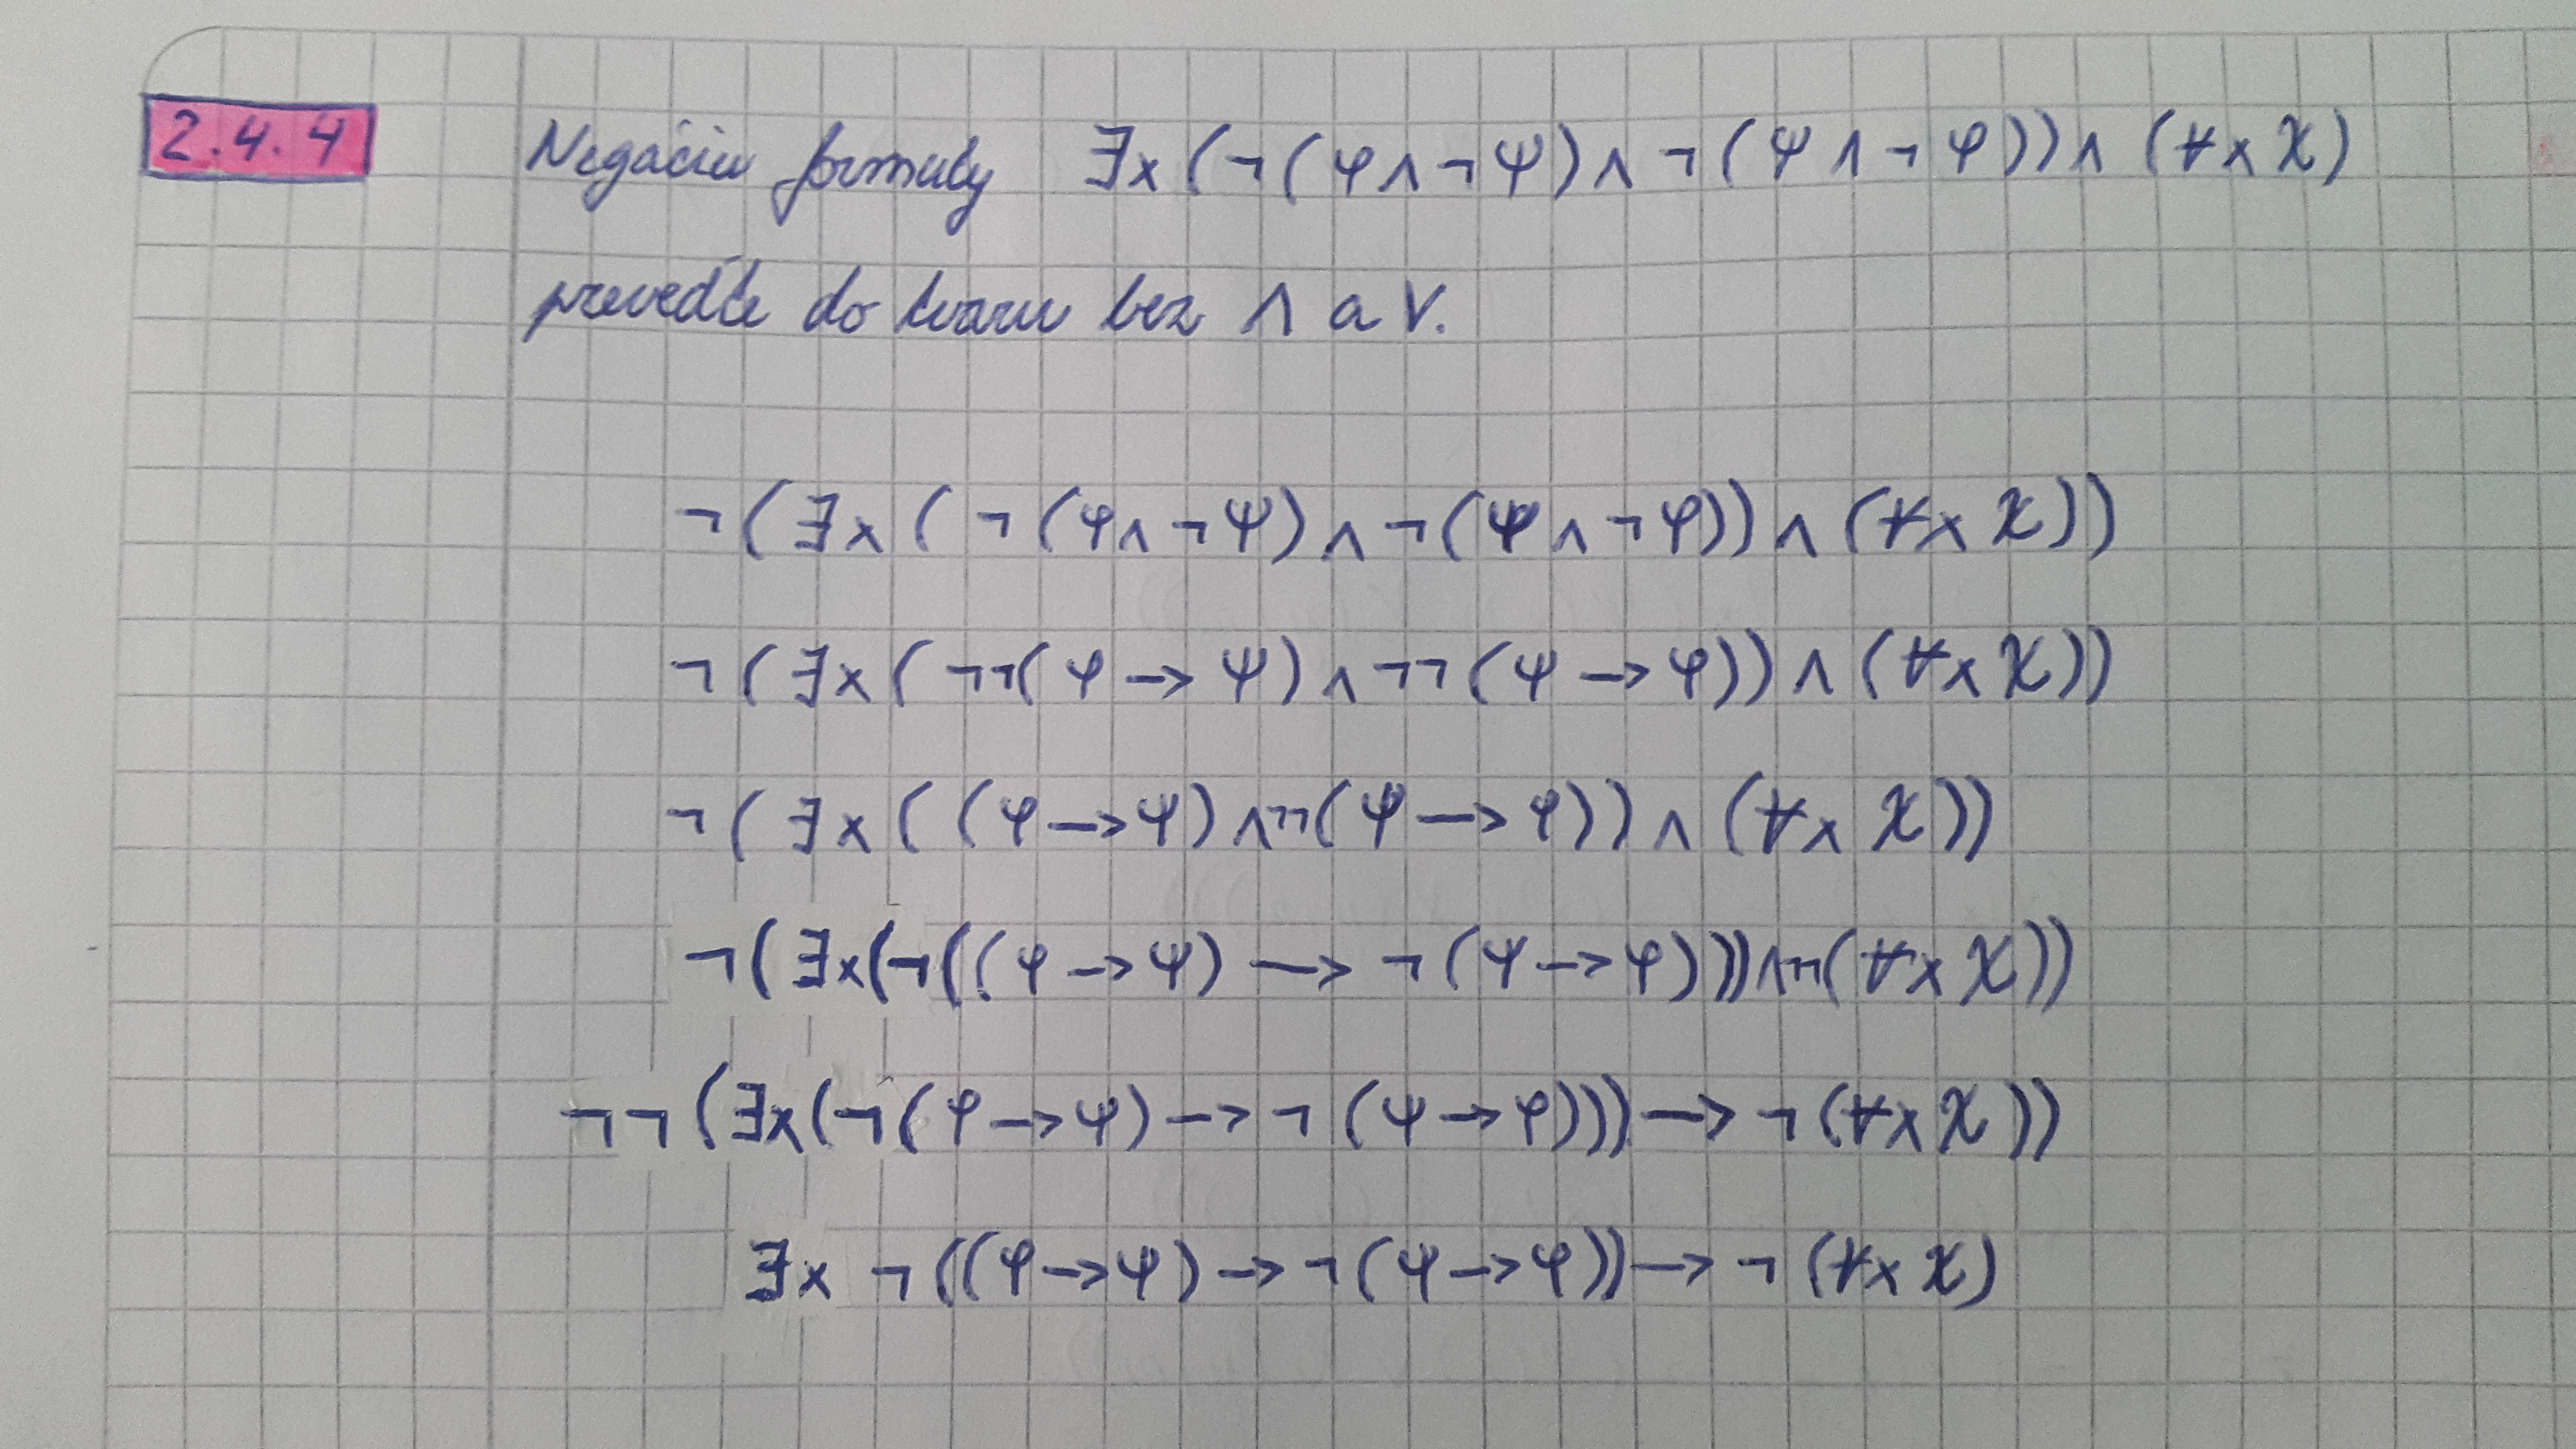 2.4.4 Negáciu formuly ∃x(¬(φ∧¬ψ)∧¬(ψ∧¬φ))∧(∀x χ)
preveďte do tvaru bez ∧ a ∨.
¬(∃x(¬(φ∧¬ψ)∧¬(ψ∧¬φ))∧(∀x χ))
¬(∃x(¬¬(φ→ψ)∧¬¬(ψ→φ))∧(∀x χ))
¬(∃x((φ→ψ)∧¬¬(ψ→φ))∧(∀x χ))
¬(∃x(¬((φ→ψ)→¬(ψ→φ)))∧¬¬(∀x χ))
¬¬(∃x(¬(φ→ψ)→¬(ψ→φ)))→¬(∀x χ))
∃x ¬((φ→ψ)→¬(ψ→φ))→¬(∀x χ)